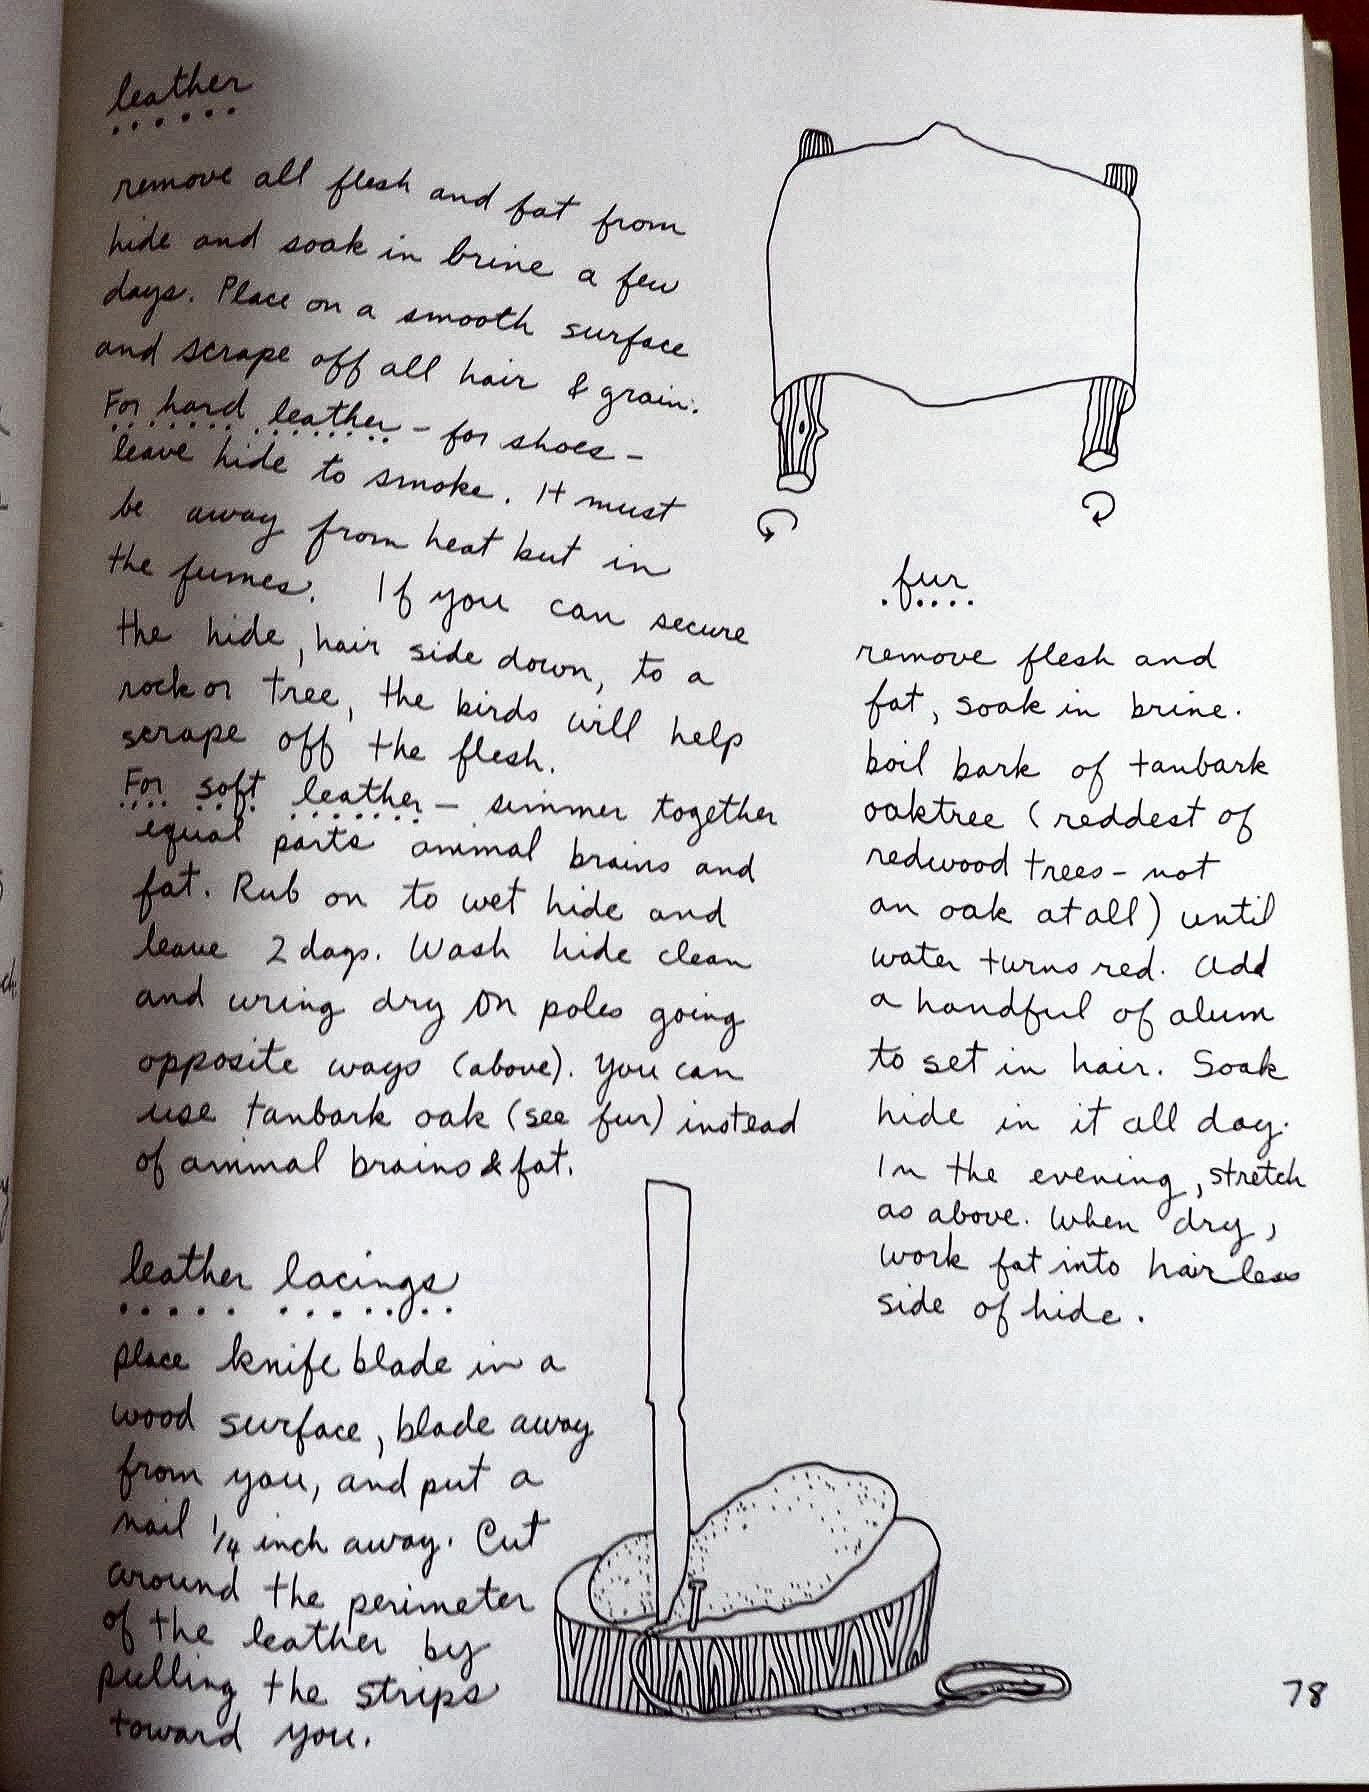 leather
remove all flesh and fat from
hide and soak in brine a few
days. Place on a smooth surface
and scrape off all hair & grain.
For hard leather - for shoes -
leave hide to smoke. It must
be away from heat but in
the fumes. If you can secure
the hide, hair side down, to a
rock or tree, the birds will help
scrape off the flesh.
For soft leather - simmer together
equal parts animal brains and
fat. Rub on to wet hide and
leave 2 days. Wash hide clean
and wring dry on poles going
opposite ways (above). You can
use tanbark oak (see fur) instead
of animal brains & fat.
fur
remove flesh and
fat, soak in brine.
boil bark of tanbark
oaktree (reddest of
redwood trees - not
an oak at all) until
water turns red. Add
a handful of alum
to set in hair. Soak
hide in it all day.
In the evening, stretch
as above. When dry,
work fat into hairless
side of hide.
leather lacings
place knife blade in a
wood surface, blade away
from you, and put a
nail 1/4 inch away. Cut
around the perimeter
of the leather by
pulling the strips
toward you.
78